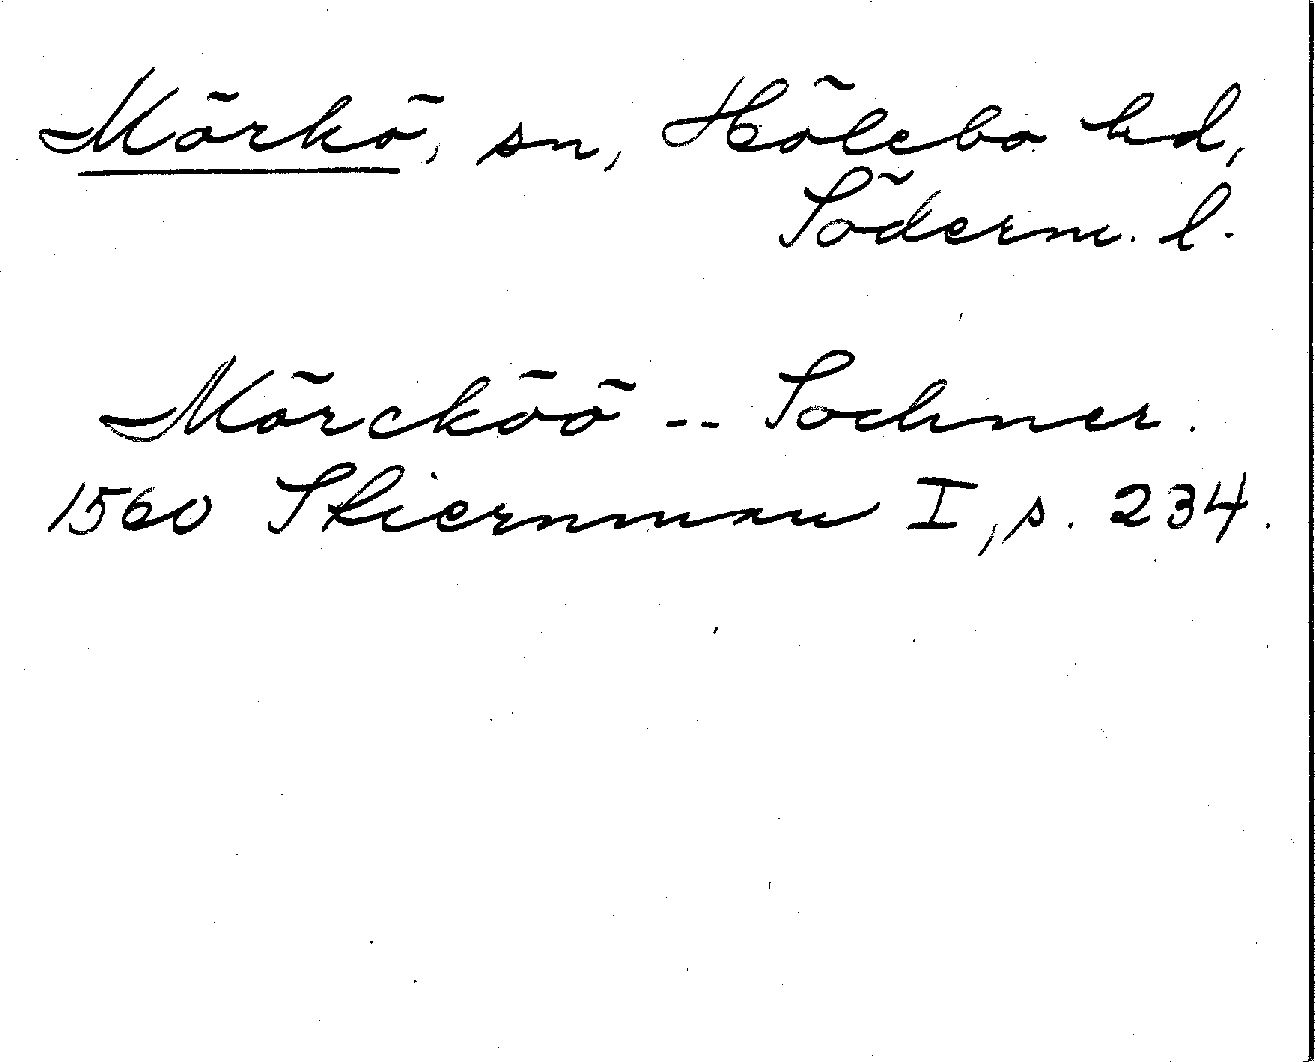 Mörkö, sn, Hölebo hd,
Söderm. l.
Mörcköö -- Sochner.
1560 Stiernman I, s. 234.